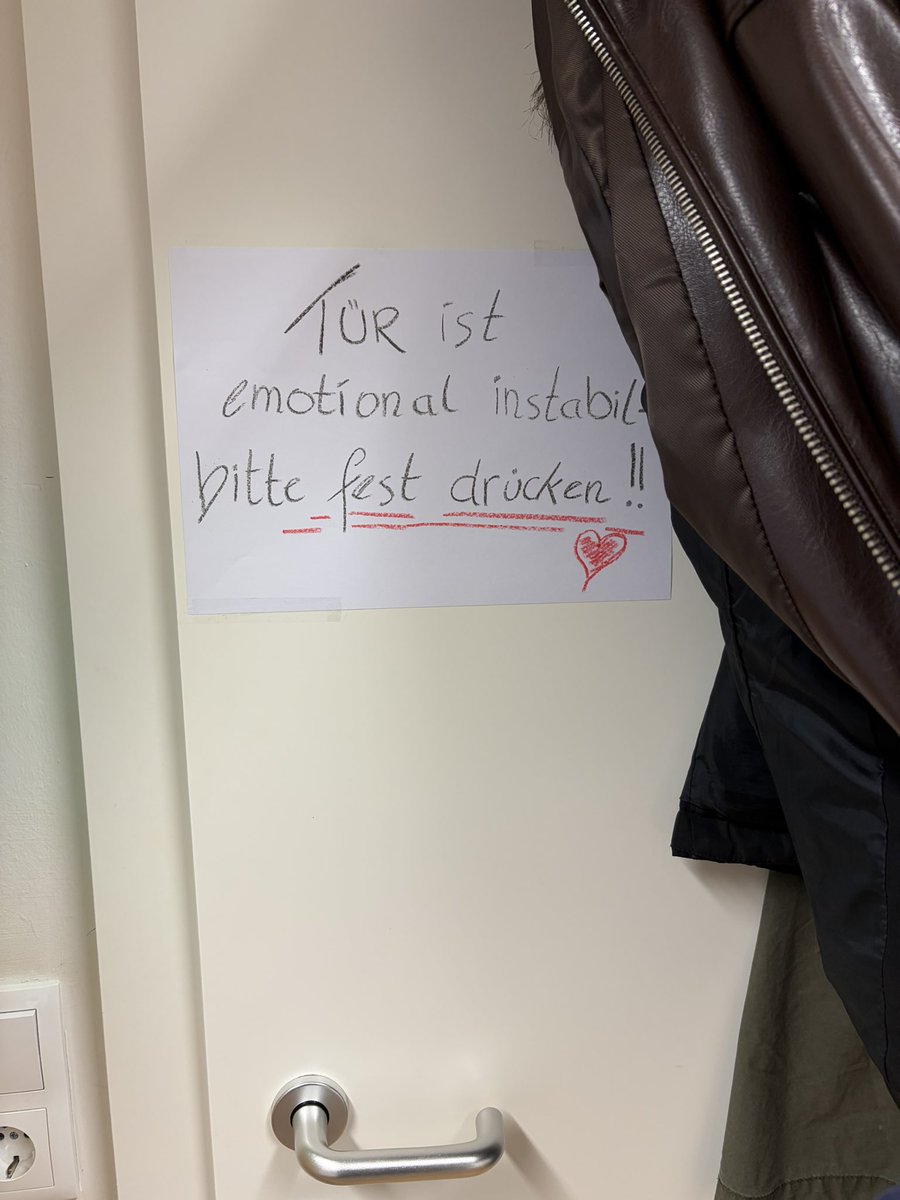 TÜR ist
emotional instabil
bitte fest drücken !!